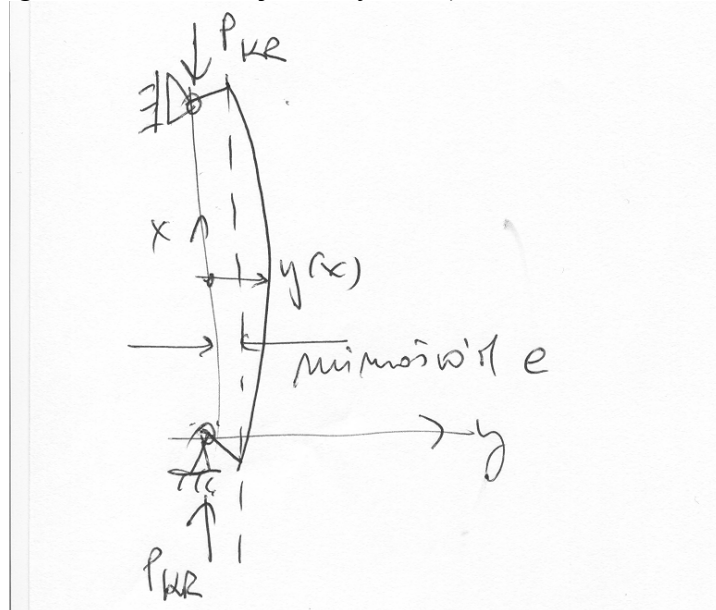 P_KR
x
y(x)
mimośród e
y
P_KR